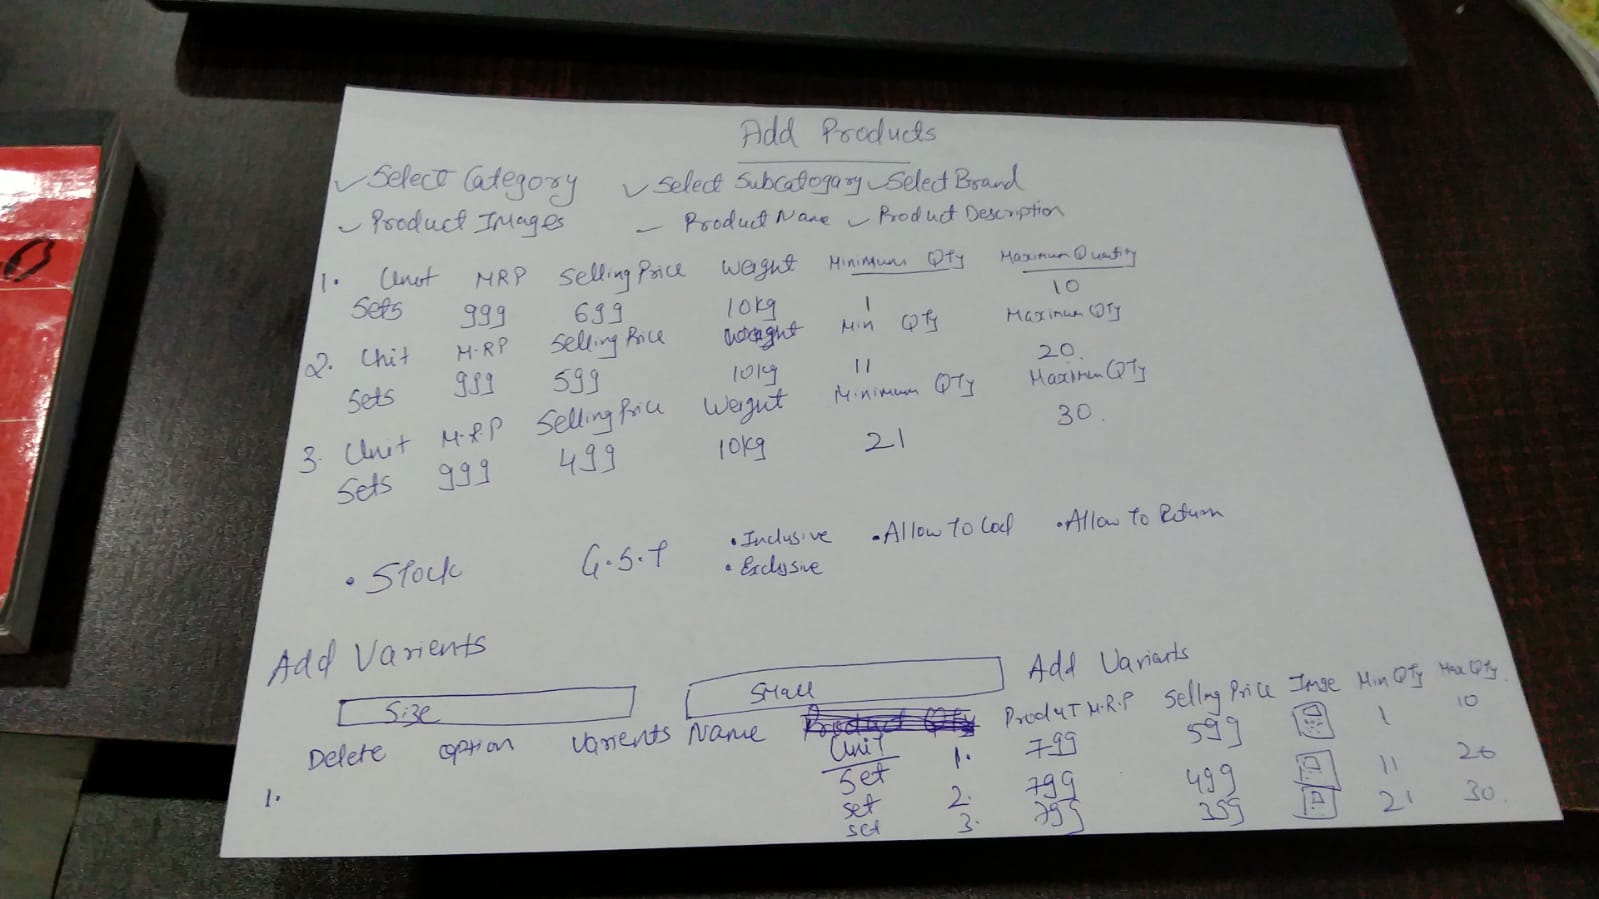 Add Products
Select Category Select Subcatogary Select Brand
Product Images Product Name Product Description
1. Unit MRP Selling Price Weight Minimum QTy Maximum Quantity
Sets 999 699 10kg 1 10
2. Unit M.RP Selling Price Weight Min QTy Maximum QTy
Sets 999 599 10kg 11 20.
3. Unit M.R.P Selling Price Weight Minimum QTy Maximum QTy
Sets 999 499 10kg 21 30.
• Stock G.S.T • Inclusive • Allow To Cod • Allow To Return
• Exclusive
Add Varients
Size Small Add Varients
Delete option Varients Name Unit Product M.R.P Selling Price Image Min QTy Max QTy.
1. Set 1. 799 599 1 10
set 2. 799 499 11 20
set 3. 799 399 21 30.